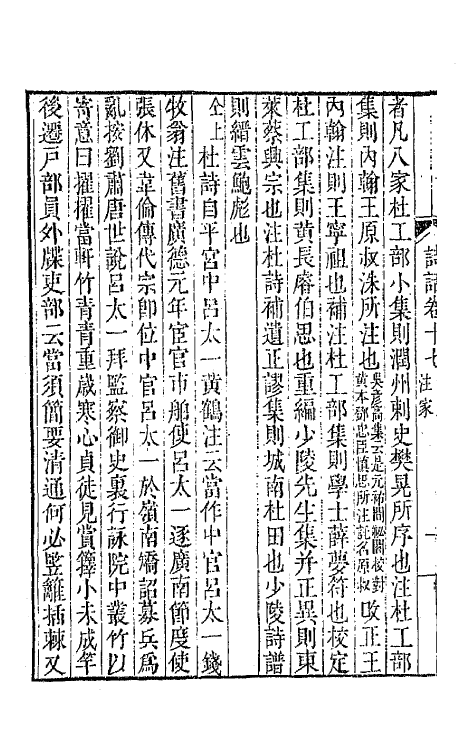 詩話卷十七　注家
者凡八家杜工部小集則潤州刺史樊晃所序也注杜工部
集則內翰王原叔洙所注也吳彥高集云是元祐間秘閣校對黃本鄧忠臣慎思所注託名原叔改正王
內翰注則王寧祖也補注杜工部集則學士薛夢符也校定
杜工部集則黃長睿伯思也重編少陵先生集幷正異則東
萊蔡興宗也注杜詩補遺正謬集則城南杜田也少陵詩譜
則縉雲鮑彪也
仝上　杜詩自平宮中呂太一黃鶴注云當作中官呂太一錢
牧翁注舊書廣德元年宦官市舶使呂太一逐廣南節度使
張休又韋倫傳代宗卽位中官呂太一於嶺南矯詔募兵爲
亂按劉肅唐世說呂太一拜監察御史裏行詠院中叢竹以
寄意曰擢擢當軒竹靑靑重歲寒心貞徒見賞籜小未成竿
後遷戶部員外牒吏部云當須簡要清通何必豎籬插棘又